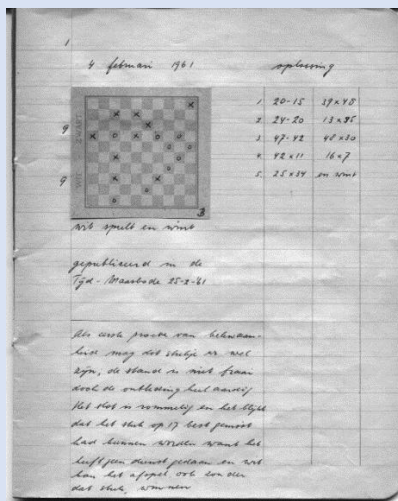 1
4 februari 1961
oplossing
1. 20-15 39x48
2. 24-20 13x35
3. 47-42 48x30
4. 42x11 16x7
5. 25x34 en wint
9
ZWART
9
WIT
B
wit speelt en wint
gepubliceerd in de
Tijd - Maasbode 25-2-'61
Als eerste proeve van
mag dit stukje er wel
zijn, de stand is niet fraai
doch de ontleding heel aardig
Het slot is rommelig en het blijkt
dat het stuk op 17 best gemist
had kunnen worden want het
heeft geen dienst gedaan en wit
kan het afspel ook zonder
dat stuk winnen